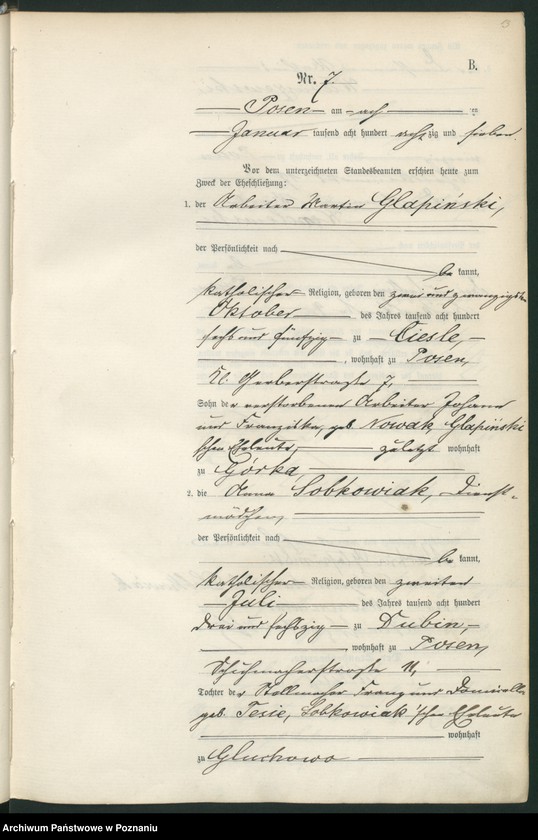 13
B.
Nr. 7.
Posen am ach ten
Januar tausend acht hundert achtzig und sieben.
Vor dem unterzeichneten Standesbeamten erschien heute zum
Zweck der Eheschließung:
1. der Arbeiter Martin Glapiński,
der Persönlichkeit nach
be kannt,
katholischer Religion, geboren den zwei und zwanzigsten
Oktober des Jahres tausend acht hundert
sechs und fünfzig zu Ciesle,
, wohnhaft zu Posen,
Kl. Gerberstraße 7,
Sohn der verstorbenen Arbeiter Johann
und Franziska, geb. Nowak, Glapiński
schen Eheleute, zuletzt wohnhaft
zu Gorka,
2. die Anna Sobkowiak, Dienst-
mädchen,
der Persönlichkeit nach
be kannt,
katholischer Religion, geboren den zweiten
Juli des Jahres tausend acht hundert
drei und sechszig zu Dubin,
, wohnhaft zu Posen,
Schuhmacherstraße 11,
Tochter der Stellmacher Franz und
geb. Tesie, Sobkowiak'schen Eheleute
wohnhaft
zu Gluchowo
Archiwum Państwowe w Poznaniu